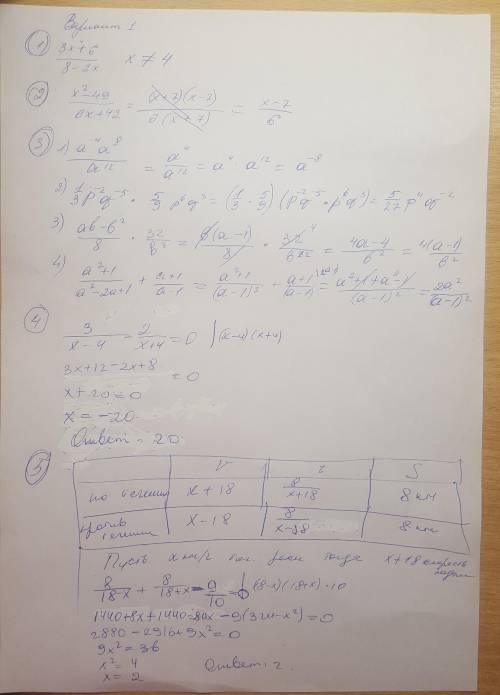 Вариант 1
① (3x+6)/(8-2x) x ≠ 4
② (x²-49)/(6x+42) = ((x+7)(x-7))/(6(x+7)) = (x-7)/6
③ 1) (a⁴a⁸)/a¹² = a⁴/a¹² = a⁴ · a¹² = a⁻⁸
2) 1/3 p⁻² q⁻⁵ · 5/9 p⁶ q³ = (1/3 · 5/9) (p⁻² q⁻⁵ · p⁶ q³) = 5/27 p⁴ q⁻²
3) (ab-b²)/8 · 32/b² = (b(a-1))/8 · 32/b² 4 = (4a-4)/b² = 4(a-1)/b²
4) (a²+1)/(a²-2a+1) + (a+1)/(a-1) = (a²+1)/(a-1)² + (a+1)/(a-1) = (a²+1+a²-1)/(a-1)² = 2a²/(a-1)²
④
3/(x-4) - 2/(x+4) = 0 |(x-4)(x+4)
3x+12-2x+8 = 0
x+20=0
x=-20
Ответ - 20
⑤
V t S
по течению x+18 8/(x+18) 8 км
против течения x-18 8/(x-18) 8 км
Пусть x км/ч реки тогда x+18 скорость
8/(18-x) + 8/(18+x) - 9/10 = 0 |(18-x)(18+x)·10
1440+8x+1440-80x-9(324-x²)=0
2880-2916+9x²=0
9x²=36
x²=4
x=2 Ответ: 2